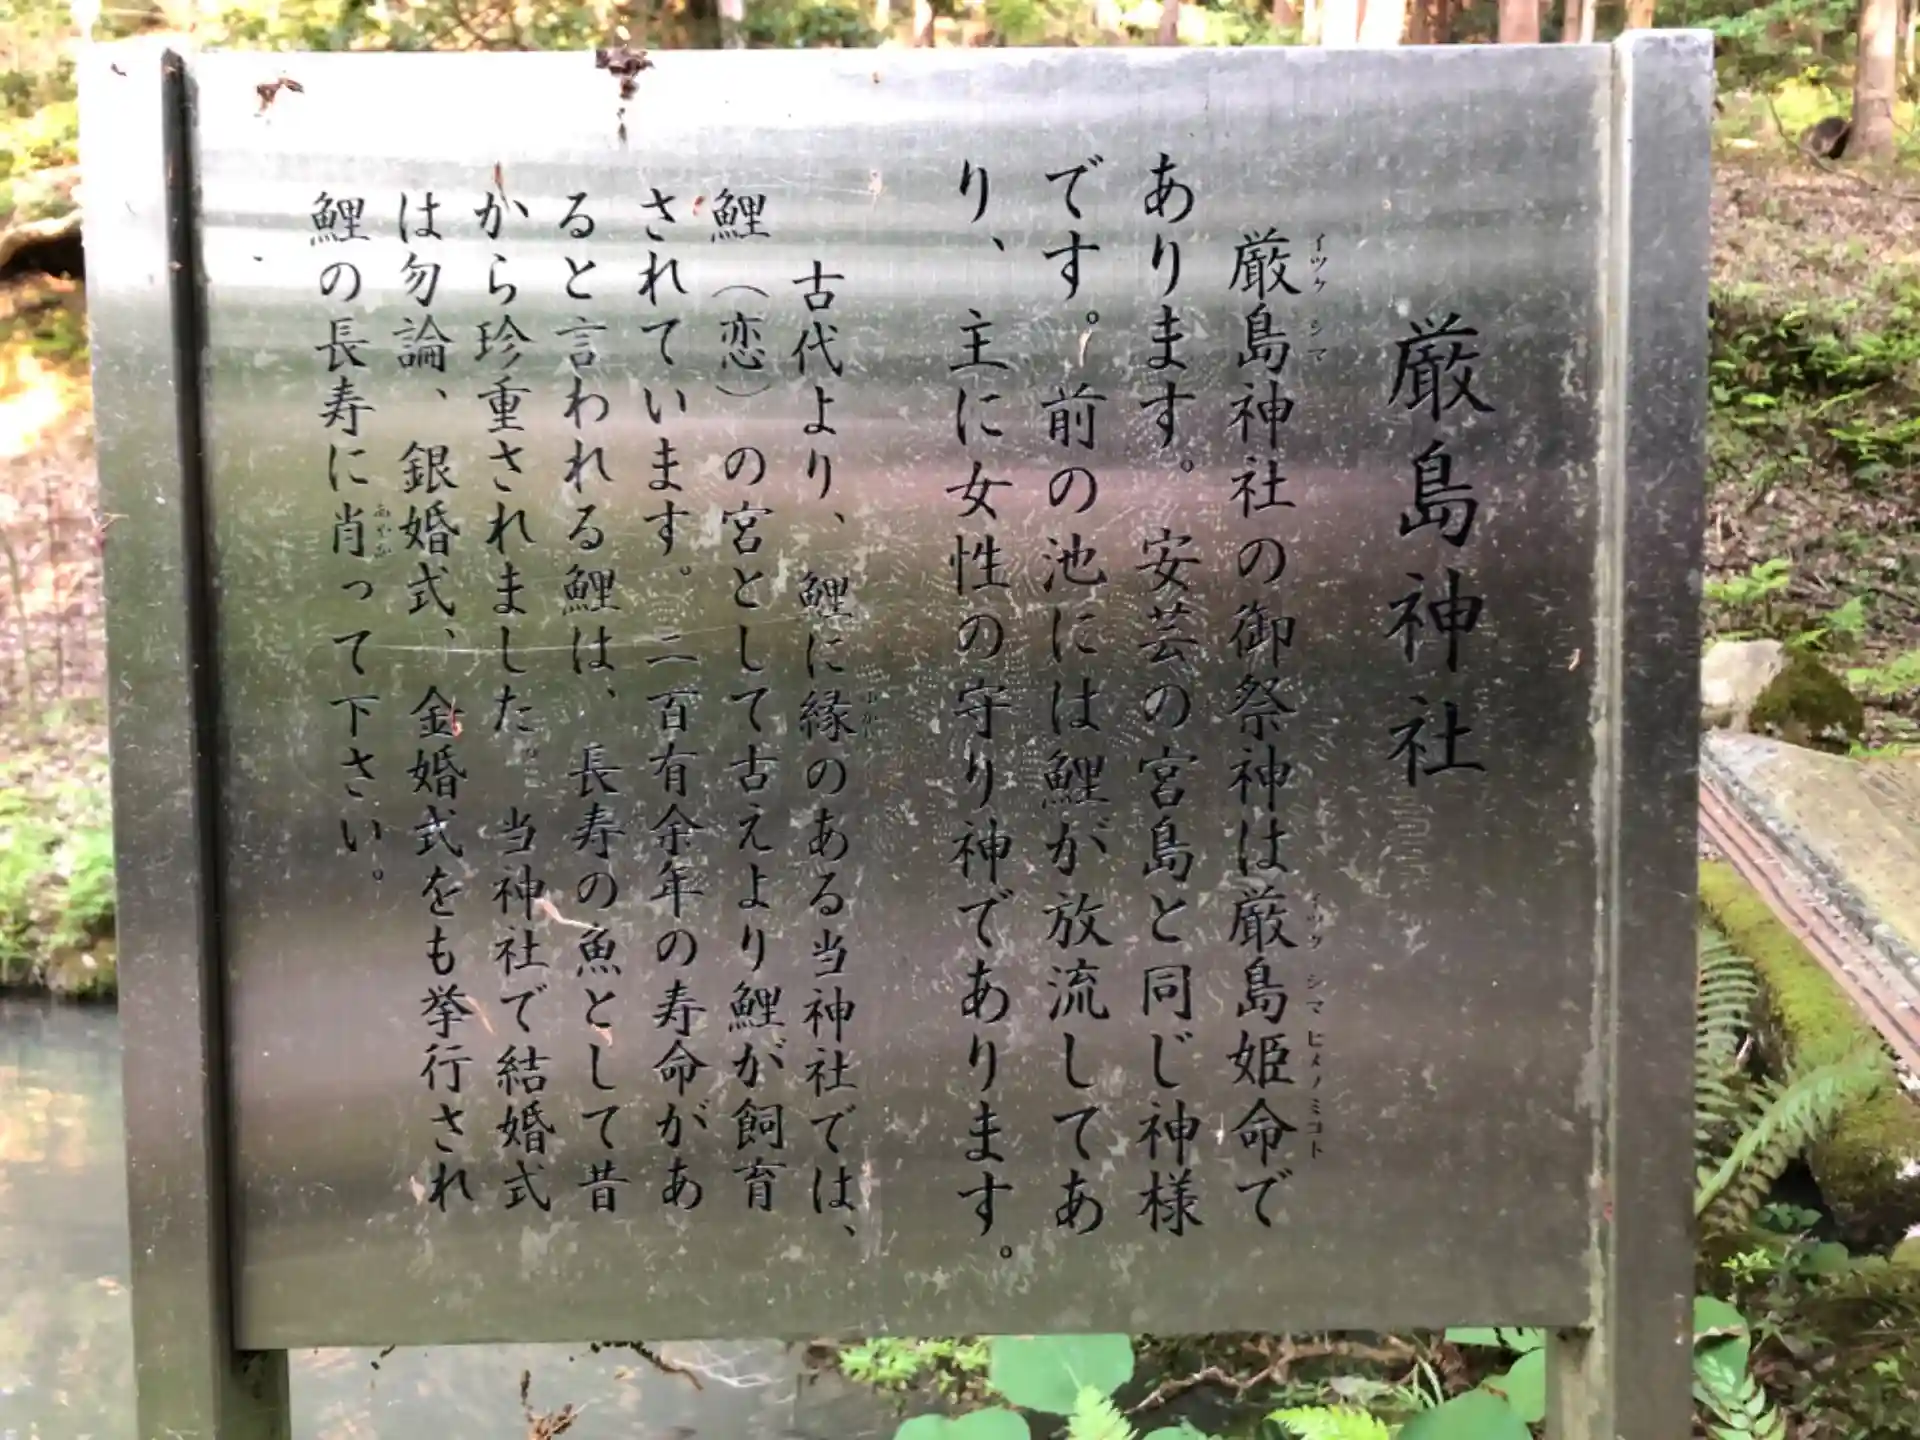 厳島神社
厳島神社の御祭神は厳島姫命で
あります。安芸の宮島と同じ神様
です。前の池には鯉が放流してあ
り、主に女性の守り神であります。
古代より、鯉に縁のある当神社では、
鯉（恋）の宮として古えより鯉が飼育
されています。二百有余年の寿命があ
ると言われる鯉は、長寿の魚として昔
から珍重されました。当神社で結婚式
は勿論、銀婚式、金婚式をも挙行され
鯉の長寿に肖って下さい。